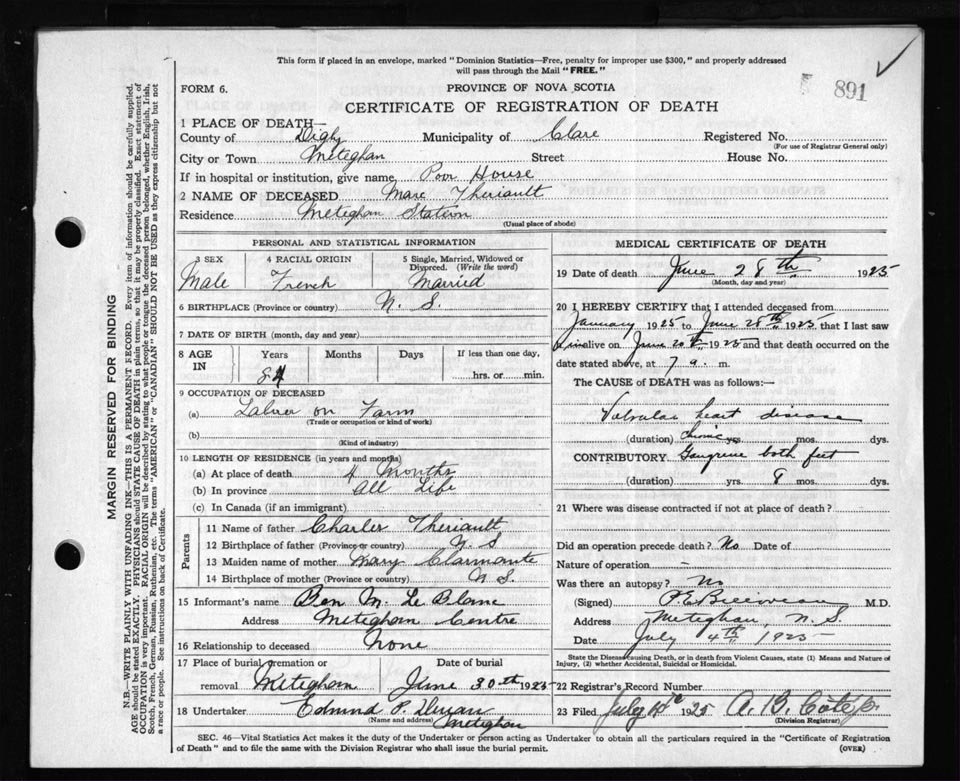 This form if placed in an envelope, marked "Dominion Statistics—Free, penalty for improper use $300," and properly addressed
will pass through the Mail "FREE."
891
FORM 6.
PROVINCE OF NOVA SCOTIA
CERTIFICATE OF REGISTRATION OF DEATH
1 PLACE OF DEATH—
County of Digby Municipality of Clare Registered No.
(For use of Registrar General only)
City or Town Meteghan Street House No.
If in hospital or institution, give name Poor House
2 NAME OF DECEASED Marc Theriault
Residence Meteghan Station
(Usual place of abode)
PERSONAL AND STATISTICAL INFORMATION
3 SEX 4 RACIAL ORIGIN 5 Single, Married, Widowed or Divorced. (Write the word)
Male French Married
6 BIRTHPLACE (Province or country) N. S.
7 DATE OF BIRTH (month, day and year)
8 AGE IN Years Months Days If less than one day,
84 hrs. or min.
9 OCCUPATION OF DECEASED
(a) Labrer on Farm
(Trade or occupation or kind of work)
(b)
(Kind of industry)
10 LENGTH OF RESIDENCE (in years and months)
(a) At place of death 4 Months
(b) In province All Life
(c) In Canada (if an immigrant)
Parents
11 Name of father Charles Theriault
12 Birthplace of father (Province or country) N. S
13 Maiden name of mother Mary
14 Birthplace of mother (Province or country) N S.
15 Informant's name Ben M. Le Blanc
Address Meteghan Centre
16 Relationship to deceased None
17 Place of burial, cremation or removal Meteghan
Date of burial June 30th 1925
18 Undertaker Edmund P.
(Name and address) Meteghan
MEDICAL CERTIFICATE OF DEATH
19 Date of death June 28th 1925
(Month, day and year)
20 I HEREBY CERTIFY that I attended deceased from
January 1925 to June 28th 1925, that I last saw
him alive on June 20th 1925 and that death occurred on the
date stated above, at 7 a. m.
The CAUSE of DEATH was as follows:—
Valvular heart disease
(duration) chronic yrs. mos. dys.
CONTRIBUTORY Gangrene both feet
(duration) yrs. 8 mos. dys.
21 Where was disease contracted if not at place of death?
Did an operation precede death? No Date of
Nature of operation –
Was there an autopsy? No
(Signed) M.D.
Address Meteghan, N. S.
Date July 4th 1925
State the Disease causing Death, or in death from Violent Causes, state (1) Means and Nature of
Injury, (2) whether Accidental, Suicidal or Homicidal.
22 Registrar's Record Number
23 Filed July 1925 A. B.
(Division Registrar)
SEC. 46—Vital Statistics Act makes it the duty of the Undertaker or person acting as Undertaker to obtain all the particulars required in the "Certificate of Registration
of Death" and to file the same with the Division Registrar who shall issue the burial permit.
(OVER)
MARGIN RESERVED FOR BINDING
N.B.—WRITE PLAINLY WITH UNFADING INK—THIS IS A PERMANENT RECORD. Every item of information should be carefully supplied.
AGE should be stated EXACTLY. PHYSICIANS should STATE CAUSE OF DEATH in plain terms, so that it may be properly classified. Exact statement of
OCCUPATION is very important. RACIAL ORIGIN will be described by stating to what people or tongue the deceased person belonged, whether English, Irish,
Scotch, French, German, Russian, Ruthenian, etc. The terms "AMERICAN" or "CANADIAN" SHOULD NOT BE USED as they express citizenship but not
a race or people. See instructions on back of Certificate.